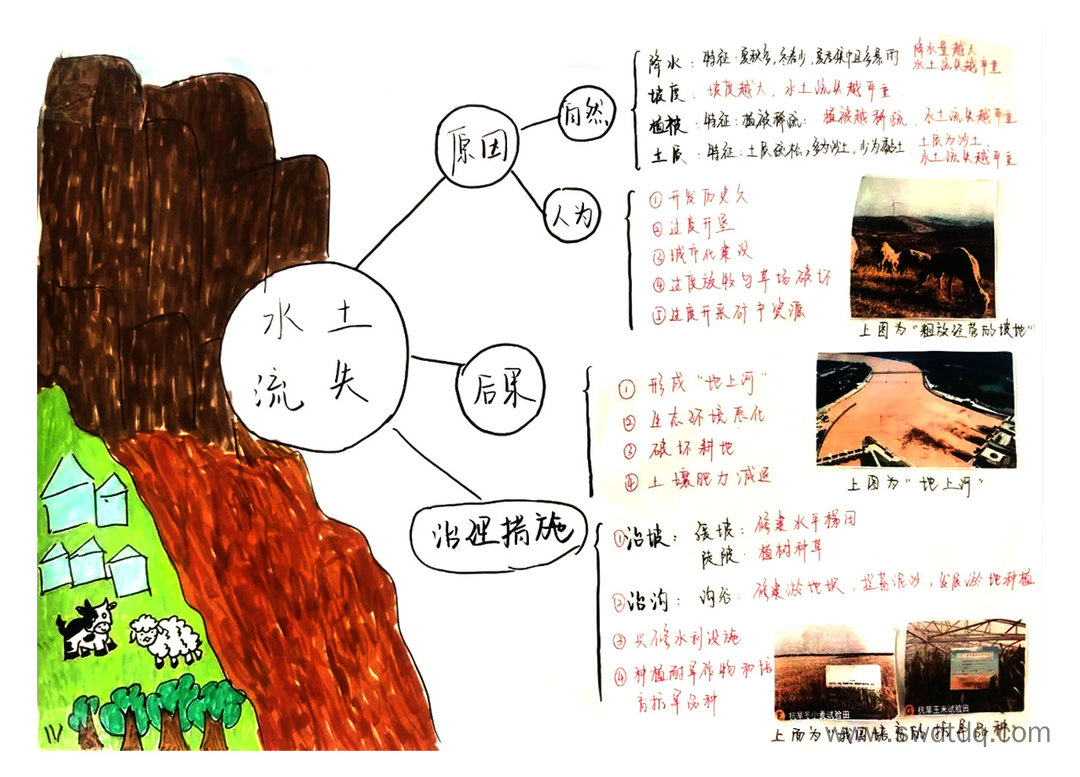 水土
流失
原因
自然
降水：特征：夏秋多，冬春少，夏季集中且多暴雨 降水量越大
水土流失越严重
坡度：坡度越大，水土流失越严重
植被：特征：植被稀疏：植被越稀疏，水土流失越严重
土质：特征：土质疏松，多为沙土，少为黏土 土质为沙土，
水土流失越严重
人为
①开发历史久
②过度开垦
③城市化建设
④过度放牧与草场破坏
⑤过度开采矿产资源
上图为“粗放经营的坡地”
后果
①形成“地上河”
②生态环境恶化
③破坏耕地
④土壤肥力减退
上图为“地上河”
治理措施
①治坡：缓坡：修建水平梯田
陡坡：植树种草
②治沟：沟谷：修建淤地坝，拦蓄泥沙，发展淤地种植
③兴修水利设施
④种植耐旱作物和培
育抗旱品种
抗旱冬小麦试验田
抗旱玉米试验田
上面为“我国培育的抗旱品种
www.swdtdq.com